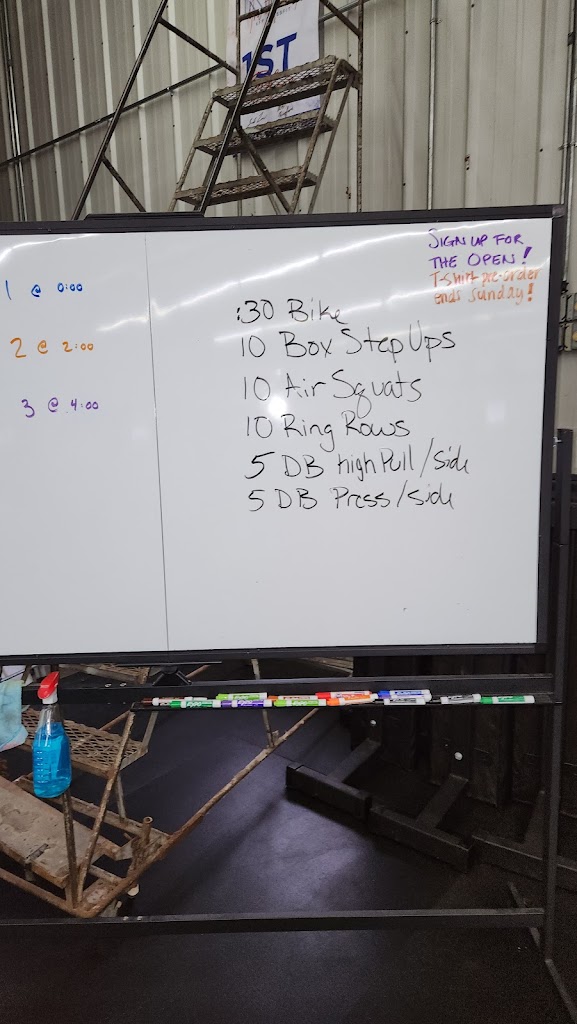 1ST
SIGN UP FOR
THE OPEN!
T-shirt pre-order
ends Sunday!
1 @ 0:00
2 @ 2:00
3 @ 4:00
:30 Bike
10 Box Step Ups
10 Air Squats
10 Ring Rows
5 DB high Pull/side
5 DB Press/side